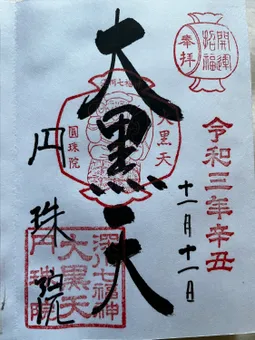 開運
招福
奉拝
令和三年辛丑
十一月十一日
七福
大黒天
圓珠院
大黒天
円珠院
深川七福神
大黒天
円珠院